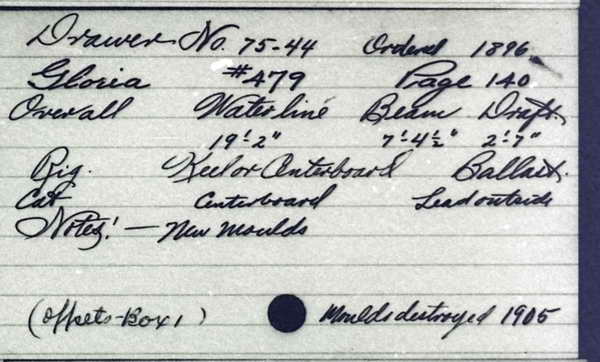 Drawer No. 75-44 Ordered 1896
Gloria #479 Page 140
Overall Waterline Beam Draft.
19'-2" 7'-4½" 2'-7"
Rig. Keel or Centerboard Ballast.
Cat Centerboard Lead outside
Notes! — New moulds
(Offsets-Box 1) Moulds destroyed 1905